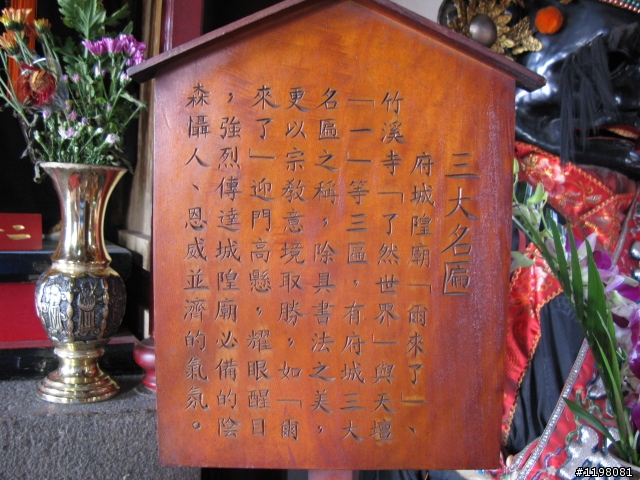 三大名匾
府城隍廟「爾來了」、
竹溪寺「了然世界」與天壇
「一」等三匾，有府城三大
名匾之稱，除具書法之美，
更以宗教意境取勝，如「爾
來了」迎門高懸，耀眼醒目
，強烈傳達城隍廟必備的陰
森懾人、恩威並濟的氣氛。
二十
#1198081